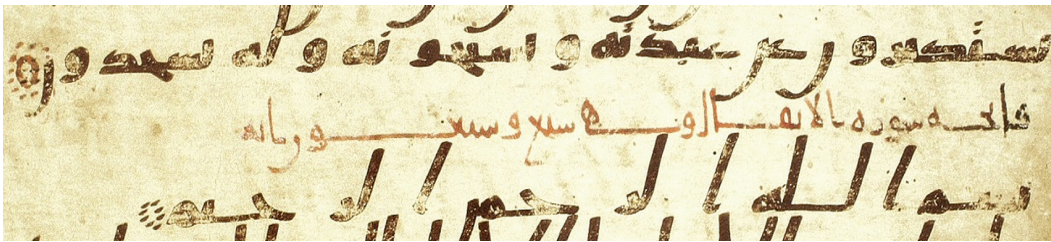 يستكبرون عن عبدته ويسبحونه وله يسجدون
فاتحه سوره الانفال وهى سبع وسبعون ايه
بسم الله الرحمن الرحيم